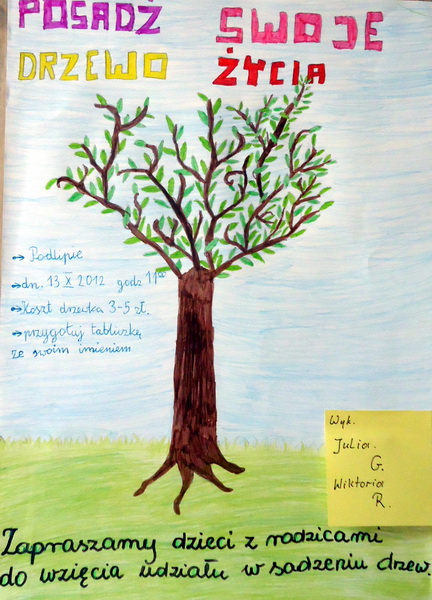 POSADŹ SWOJE
DRZEWO ŻYCIA
→ Podlipie
→ dn. 13 X 2012 godz 11⁰⁰
→ Koszt drzewka 3-5 zł.
→ przygotuj tabliczkę
ze swoim imieniem
Wyk.
Julia.
G.
Wiktoria
R.
Zapraszamy dzieci z rodzicami
do wzięcia udziału w sadzeniu drzew.